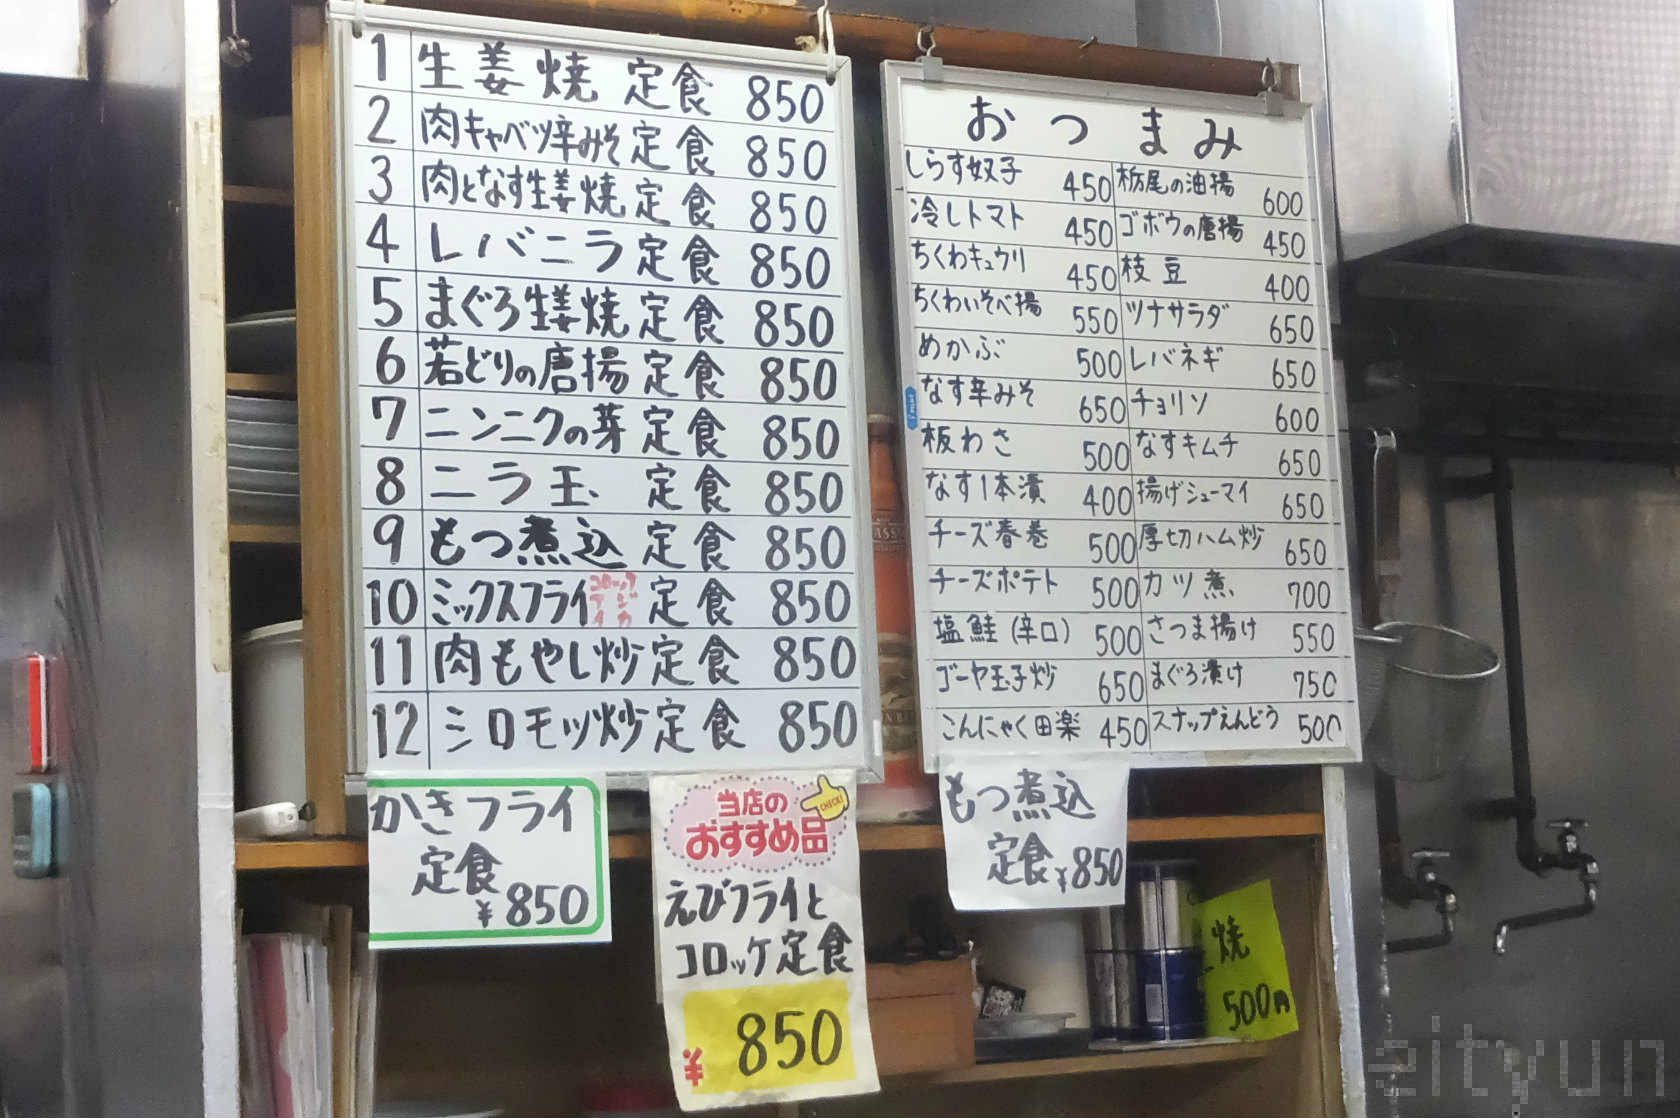 1 生姜焼定食 850
2 肉キャベツ辛みそ定食 850
3 肉となす生姜焼定食 850
4 レバニラ定食 850
5 まぐろ生姜焼定食 850
6 若どりの唐揚定食 850
7 ニンニクの芽定食 850
8 ニラ玉 定食 850
9 もつ煮込定食 850
10 ミックスフライ コロッケ アジ イカ 定食 850
11 肉もやし炒定食 850
12 シロモツ炒定食 850
かきフライ
定食
¥850
当店の
おすすめ品
CHECK!
えびフライと
コロッケ定食
¥850
おつまみ
しらす奴子 450
冷しトマト 450
ちくわキュウリ 450
ちくわいそべ揚 550
めかぶ 500
なす辛みそ 650
板わさ 500
なす1本漬 400
チーズ春巻 500
チーズポテト 500
塩鮭(辛口) 500
ゴーヤ玉子炒 650
こんにゃく田楽 450
栃尾の油揚 600
ゴボウの唐揚 450
枝豆 400
ツナサラダ 650
レバネギ 650
チョリソ 600
なすキムチ 650
揚げシューマイ 650
厚切ハム炒 650
カツ煮 700
さつま揚げ 550
まぐろ漬け 750
スナップえんどう 500
もつ煮込
定食¥850
焼
500円
eityun